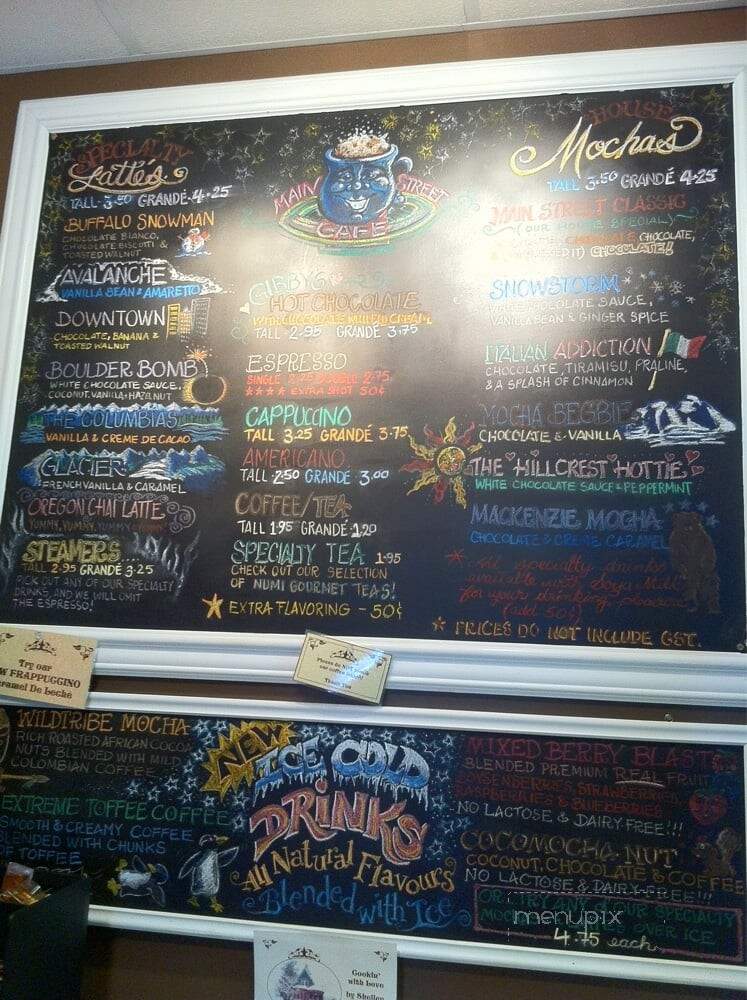 SPECIALTY
Latte's
TALL 3.50 GRANDÉ 4.25
BUFFALO SNOWMAN
CHOCOLATE BIANCO,
CHOCOLATE BISCOTTI &
TOASTED WALNUT
AVALANCHE
VANILLA BEAN & AMARETTO
DOWNTOWN
CHOCOLATE, BANANA &
TOASTED WALNUT
BOULDER BOMB
WHITE CHOCOLATE SAUCE,
COCONUT, VANILLA & HAZELNUT
THE COLUMBIAS
VANILLA & CREME DE CACAO
GLACIER
FRENCH VANILLA & CARAMEL
OREGON CHAI LATTE
YUMMY, YUMMY, YUMMY & YUMMY
STEAMERS...
TALL 2.95 GRANDÉ 3.25
PICK OUT ANY OF OUR SPECIALTY
DRINKS, AND WE WILL OMIT
THE ESPRESSO!
MAIN STREET
CAFÉ
GIBBY'S
HOT CHOCOLATE
WITH CHOCOLATE WHIPPED CREAM
TALL 2.95 GRANDÉ 3.75
ESPRESSO
SINGLE 2.25 DOUBLE 2.75
**** EXTRA SHOT 50¢
CAPPUCCINO
TALL 3.25 GRANDÉ 3.75
AMERICANO
TALL 2.50 GRANDÉ 3.00
COFFEE/TEA
TALL 1.95 GRANDÉ 2.20
SPECIALTY TEA 1.95
CHECK OUT OUR SELECTION
OF NUMI GOURMET TEAS!
EXTRA FLAVORING - 50¢
HOUSE
Mochas
TALL 3.50 GRANDÉ 4.25
MAIN STREET CLASSIC
(OUR HOUSE SPECIAL)
CHOCOLATE CHOCOLATE,
CHOCOLATE!
SNOWSTORM
WHITE CHOCOLATE SAUCE,
VANILLA BEAN & GINGER SPICE
ITALIAN ADDICTION
CHOCOLATE, TIRAMISU, PRALINE,
& A SPLASH OF CINNAMON
MOCHA BEGBIE
CHOCOLATE & VANILLA
THE HILLCREST HOTTIE
WHITE CHOCOLATE SAUCE & PEPPERMINT
MACKENZIE MOCHA
CHOCOLATE & CREME CARAMEL
* All specialty drinks
available with Soya Milk
for your drinking pleasure
(add 50¢)
* PRICES DO NOT INCLUDE GST.
Try our
FRAPPUGGINO
Caramel De leche
Please do
our coffee
Thank You
WILDTRIBE MOCHA
RICH ROASTED AFRICAN COCOA
NUTS BLENDED WITH MILD
COLOMBIAN COFFEE
EXTREME TOFFEE COFFEE
SMOOTH & CREAMY COFFEE
BLENDED WITH CHUNKS
OF TOFFEE
NEW
ICE COLD
DRINKS
All Natural Flavours
Blended with Ice
MIXED BERRY BLAST
BLENDED PREMIUM REAL FRUIT
BOYSENBERRIES, STRAWBERRIES,
RASPBERRIES & BLUEBERRIES
NO LACTOSE & DAIRY-FREE!!!
COCOMOCHA NUT
COCONUT, CHOCOLATE & COFFEE
NO LACTOSE & DAIRY-FREE!!!
OR TRY ANY OF OUR SPECIALTY
MOCHAS OVER ICE
4.75 each
menupix
Cookin'
with Love
by Shelley